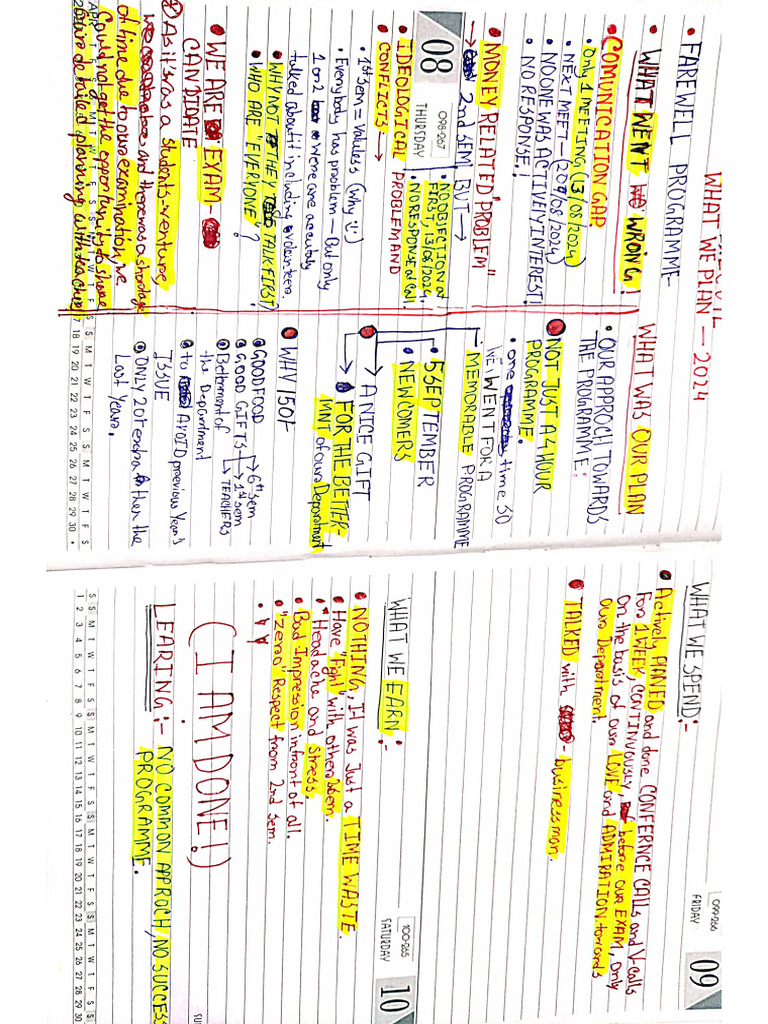 WHAT WE PLAN — 2024
• FAREWELL PROGRAMME-
WHAT WENT WRONG!
• COMUNICATION GAP.
• only 1 MEETING (13/08/2024)
• NEXT MEET — (20/08/2024)
• NO ONE WAS ACTIVELY INTEREST!
• NO RESPONSE!
• MONEY RELATED "PROBLEM"
→ 2nd SEM, BUT →
• NO OBJECTION at FIRST, 13/08/2024.
• NO RESPONSE at Call.
08
098-267
THURSDAY
• IDEOLOGICAL PROBLEM AND
CONFLICTS →
• 1st sem = Values (Why !!)
• Everybody has problem — But only
1 or 2 were accutaly
talked about it including volunteer.
• WHY NOT THEY TALK FIRST?
• WHO ARE "EVERYONE"?
• WE ARE EXAM-
CANDIDATE
① As it was a students venture
and there was a shortage
of time due to our examination, we
Could not get the opportunity to share
our detailed planning with teachers
WHAT WAS OUR PLAN
• OUR APPROCH TOWARDS-
THE PROGRAMME:
NOT JUST A 4 HOUR
PROGRAMME.
• one time SO
WE WENT FOR A
MEMORABLE PROGRAMME
• 5 SEPTEMBER
• NEWCOMERS
A NICE GIFT
FOR THE BETTER-
MNT of our Department
• WHY 150/-
• GOOD FOOD
• GOOD GIFTS → 6th sem
→ 1st sem
→ TEACHERS
• Betterment of
the Department
• to AVOID previous Year's
ISSUE
• ONLY 20₹ extra then the
Last Years.
APR
S M T W T F S
17 18 19 20 21 22 23 24 25 26 27 28 29 30 •
099-266
FRIDAY
09
WHAT WE SPEND:-
• Actively PLANED and done CONFERNCE CALLS and V-calls
For 1 WEEK CONTINVOUSLY, before our EXAM, only
On the basis of our LOVE and ADMIRATION towards
our Department.
• TALKED with - businessman.
100-265
SATURDAY
10
WHAT WE EARN:-
• NOTHING, It was Just a TIME WASTE.
• Have "Fight" with others sem.
• Headache and stress.
• Bad Impression infront of all.
• "Zero" Respect from 2nd sem.
( I AM DONE! )
LEARING:- NO COMMON APPROCH, NO SUCCESS
PROGRAMME.
S S M T W T F S S M T W T F S S M T W T F S S M T W T F S S
1 2 3 4 5 6 7 8 9 10 11 12 13 14 15 16 17 18 19 20 21 22 23 24 25 26 27 28 29 30